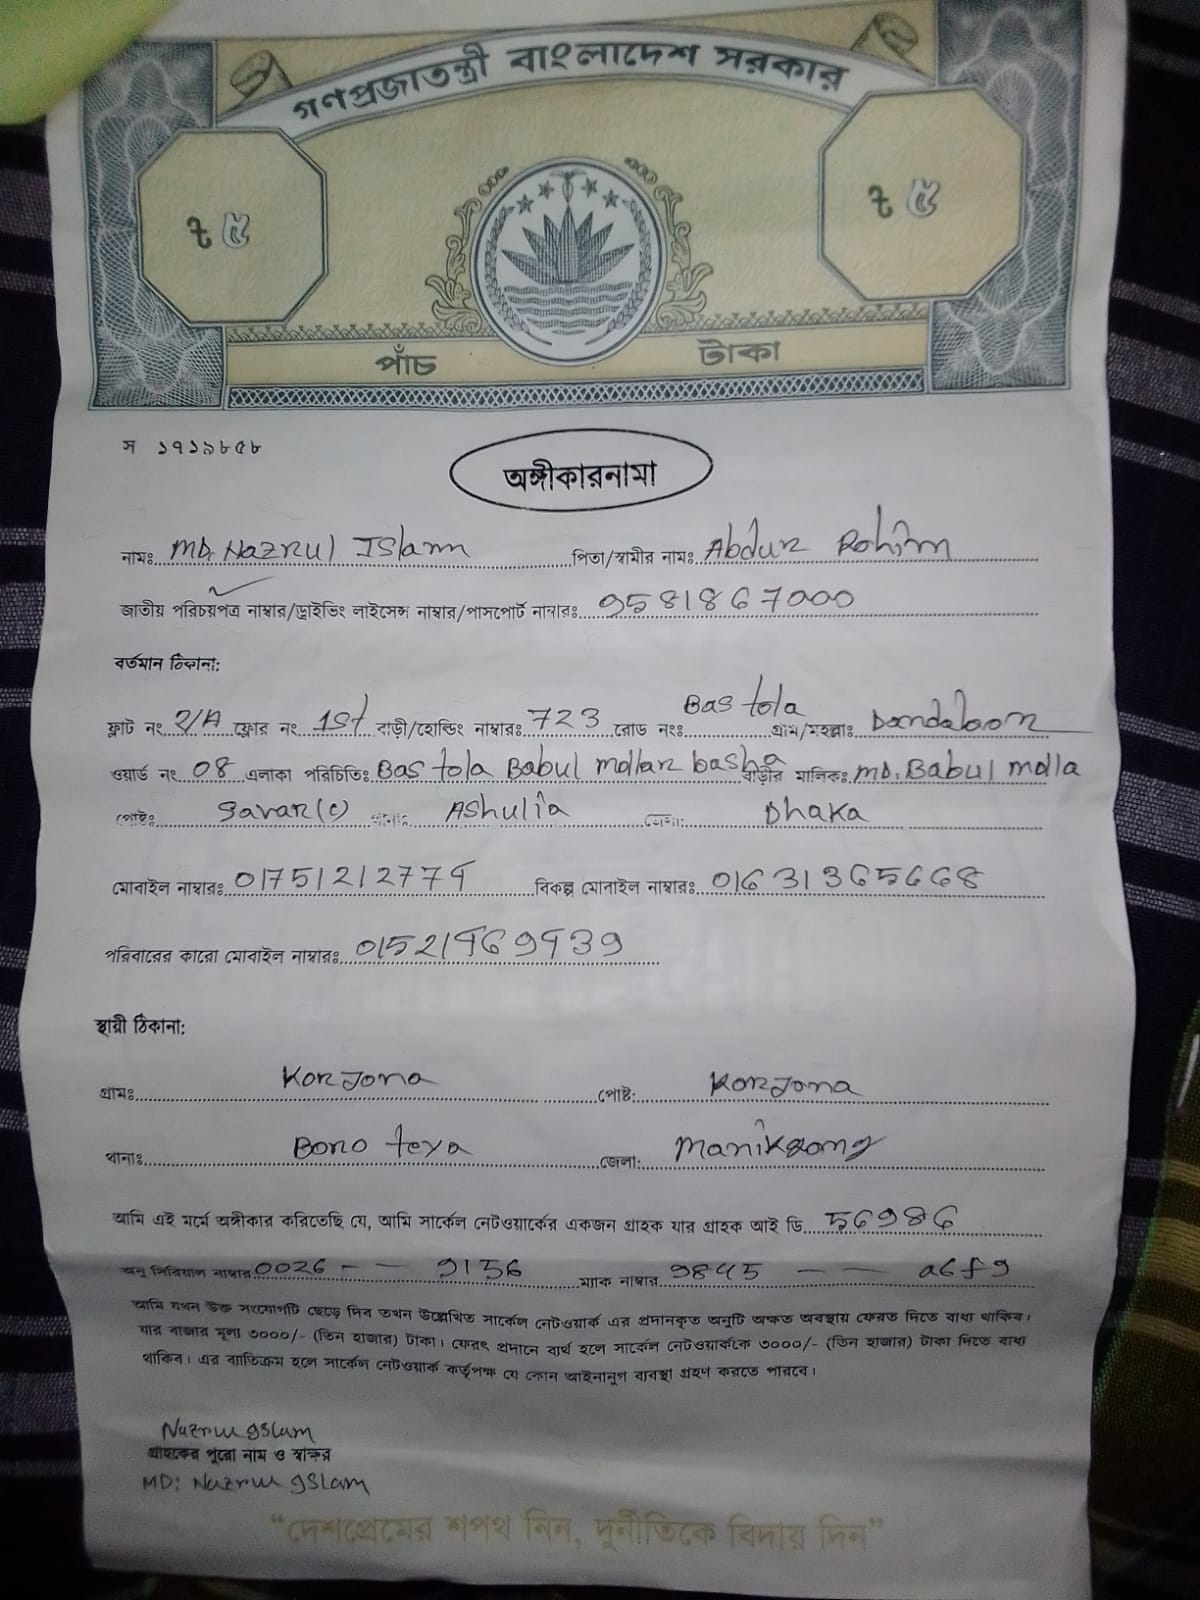 গণপ্রজাতন্ত্রী বাংলাদেশ সরকার
৳ ৫ ৳ ৫
পাঁচ টাকা
স ১৭১৯৮৫৮
অঙ্গীকারনামা
নামঃ MD. Nazrul Islam পিতা/স্বামীর নামঃ Abdur Rohim
জাতীয় পরিচয়পত্র নাম্বার/ড্রাইভিং লাইসেন্স নাম্বার/পাসপোর্ট নাম্বারঃ 9581867000
বর্তমান ঠিকানা:
ফ্লাট নং 2/A ফ্লোর নং 1st বাড়ী/হোল্ডিং নাম্বারঃ 723 রোড নংঃ Bas tola গ্রাম/মহল্লাঃ
ওয়ার্ড নং 08 এলাকা পরিচিতিঃ Bas tola Babul mollar basha বাড়ীর মালিকঃ MD. Babul molla
পোষ্টঃ Savar (c) থানাঃ Ashulia জেলা: Dhaka
মোবাইল নাম্বারঃ বিকল্প মোবাইল নাম্বারঃ
পরিবারের কারো মোবাইল নাম্বারঃ
স্থায়ী ঠিকানা:
গ্রামঃ Korjona পোষ্ট: Korjona
থানাঃ জেলা:
আমি এই মর্মে অঙ্গীকার করিতেছি যে, আমি সার্কেল নেটওয়ার্কের একজন গ্রাহক যার গ্রাহক আই ডি 56986
অনু সিরিয়াল নাম্বার 0026 - - 9156 ম্যাক নাম্বার 9845 - - a6f9
আমি যখন উক্ত সংযোগটি ছেড়ে দিব তখন উল্লেখিত সার্কেল নেটওয়ার্ক এর প্রদানকৃত অনুটি অক্ষত অবস্থায় ফেরত দিতে বাধ্য থাকিব।
যার বাজার মূল্য ৩০০০/- (তিন হাজার) টাকা। ফেরৎ প্রদানে ব্যর্থ হলে সার্কেল নেটওয়ার্ককে ৩০০০/- (তিন হাজার) টাকা দিতে বাধ্য
থাকিব। এর ব্যতিক্রম হলে সার্কেল নেটওয়ার্ক কর্তৃপক্ষ যে কোন আইনানুগ ব্যবস্থা গ্রহণ করতে পারবে।
Nazrul Islam
গ্রাহকের পুরো নাম ও স্বাক্ষর
MD: Nazrul Islam
“দেশপ্রেমের শপথ নিন, দুর্নীতিকে বিদায় দিন”